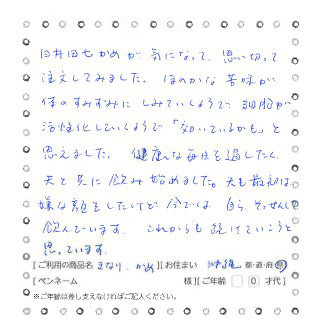 白井田七かめが気になって、思い切って
注文してみました。ほのかな苦味が
体のすみずみにしみていくようで細胞が
活性化していくようで「効いているかも」と
思えました。健康な毎日を過したく
夫と共に飲み始めました。夫も最初は
嫌な顔をしたけど今では、自らせっせと
飲んでいます。これからも続けていこうと
思っています。
[ご利用の商品名 きなり・かめ][お住まい 都・道・府・県]
[ペンネーム 様][ご年齢 0 才代]
※ご年齢は差し支えなければご記入ください。